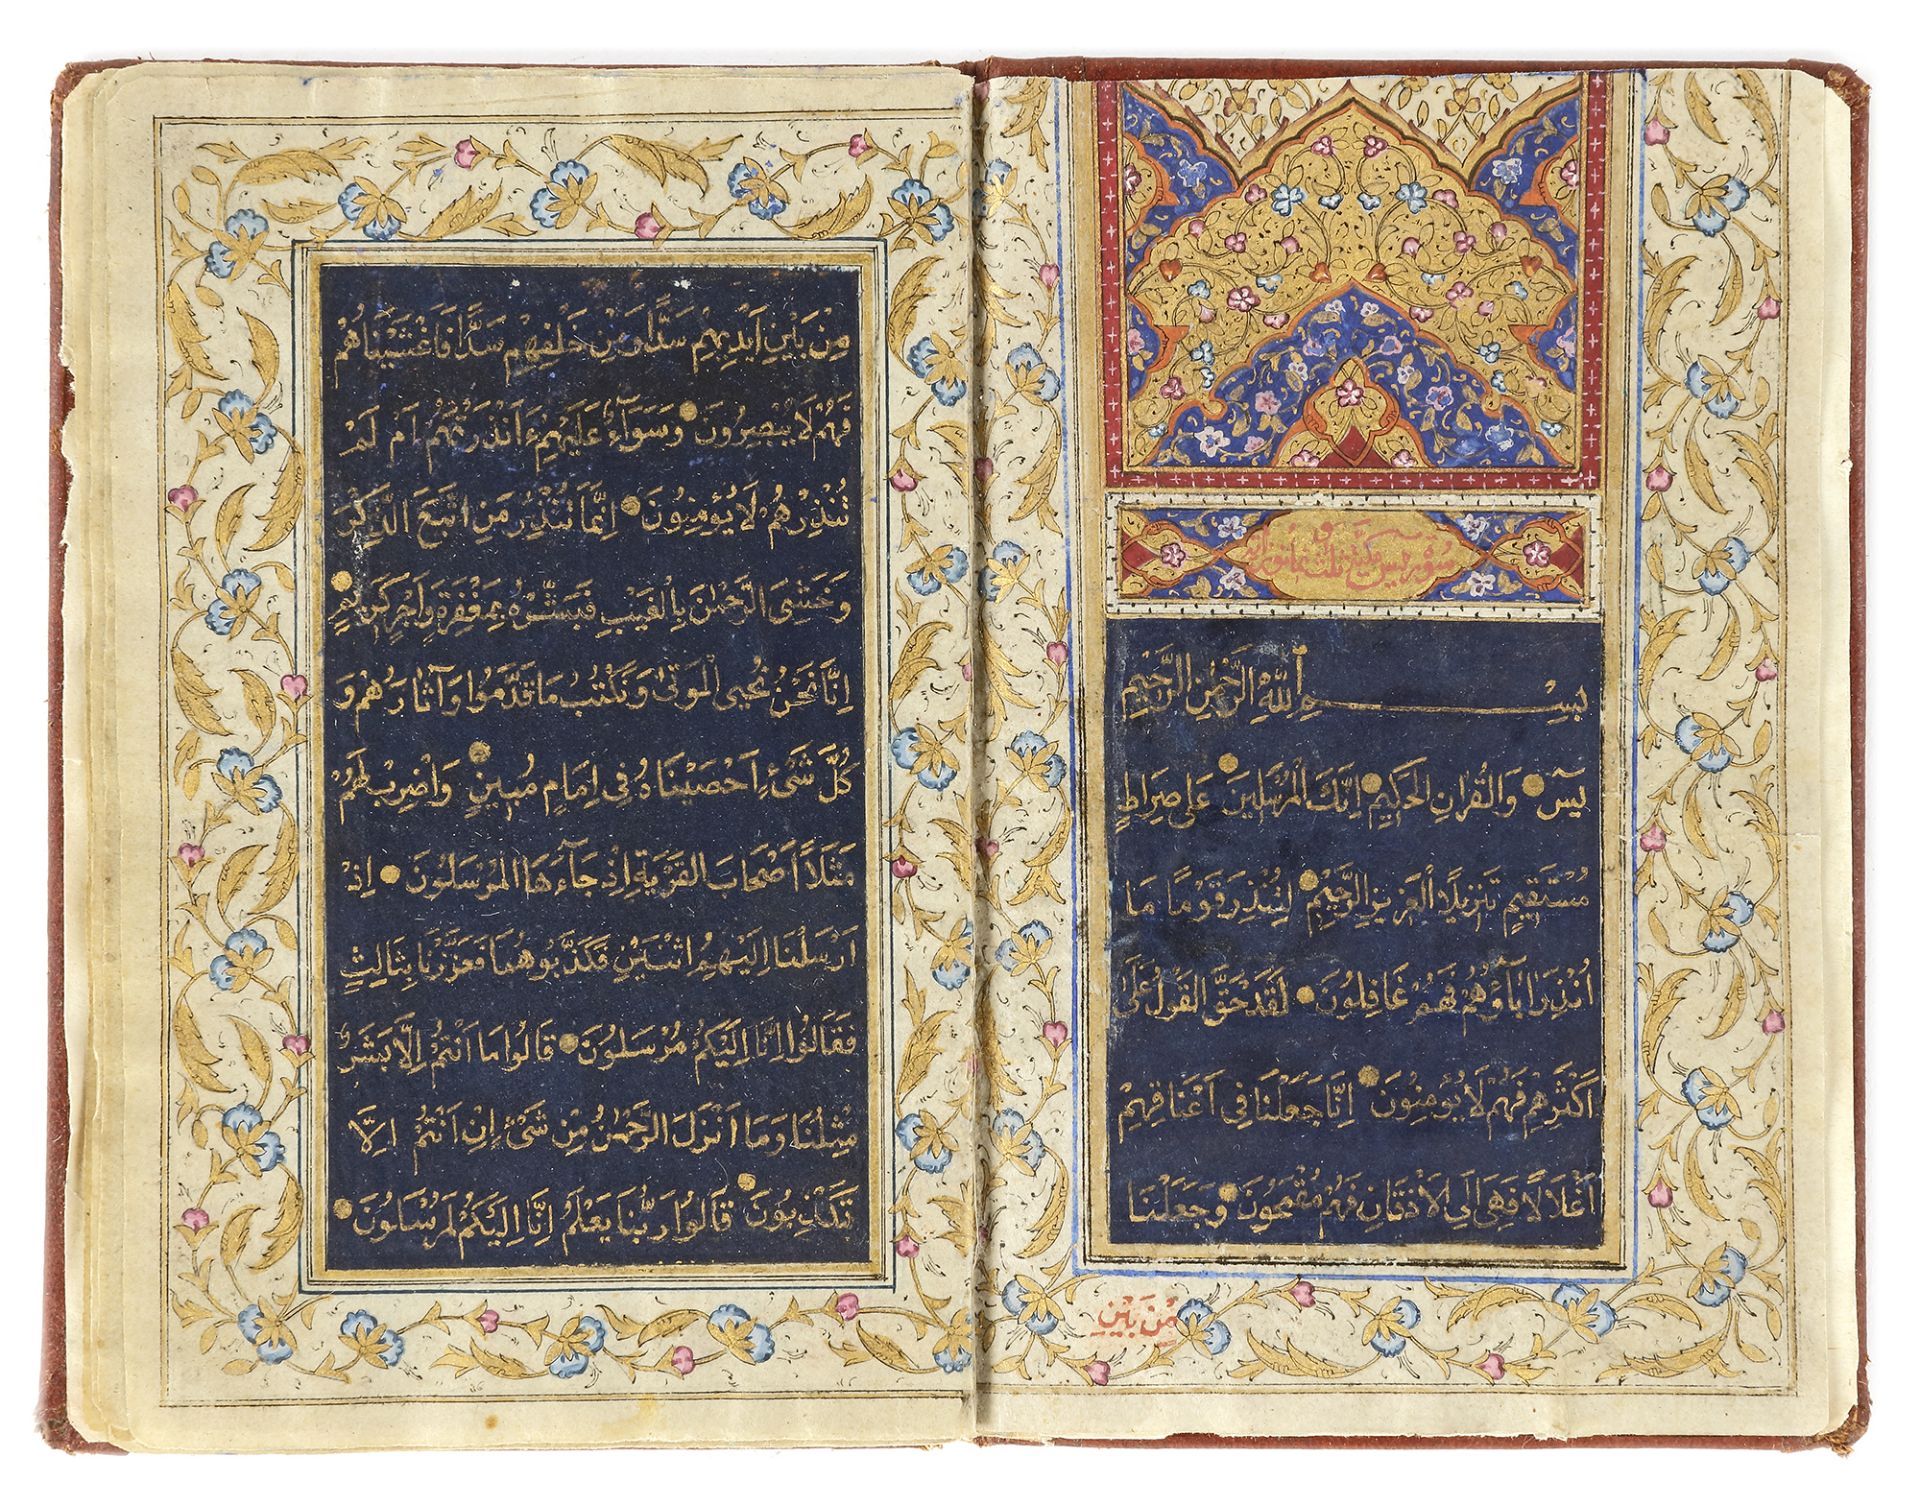 سورة يس مكية ثلث ثمانون آية
بسم الله الرحمن الرحيم
يس والقران الحكيم انك لمن المرسلين على صراط
مستقيم تنزيل العزيز الرحيم لتنذر قوما ما
انذر اباؤهم فهم غافلون لقد حق القول على
اكثرهم فهم لا يؤمنون انا جعلنا في اعناقهم
اغلالا فهي الى الاذقان فهم مقمحون وجعلنا
من بين
من بين ايديهم سدا ومن خلفهم سدا فاغشيناهم
فهم لا يبصرون وسواء عليهم ءانذرتهم ام لم
تنذرهم لا يؤمنون انما تنذر من اتبع الذكر
وخشي الرحمن بالغيب فبشره بمغفرة واجر كريم
انا نحن نحيي الموتى ونكتب ما قدموا وآثارهم و
كل شيء احصيناه في امام مبين واضرب لهم
مثلا اصحاب القرية اذ جاءها المرسلون اذ
ارسلنا اليهم اثنين فكذبوهما فعززنا بثالث
فقالوا انا اليكم مرسلون قالوا ما انتم الا بشر
مثلنا وما انزل الرحمن من شيء ان انتم الا
تكذبون قالوا ربنا يعلم انا اليكم لمرسلون